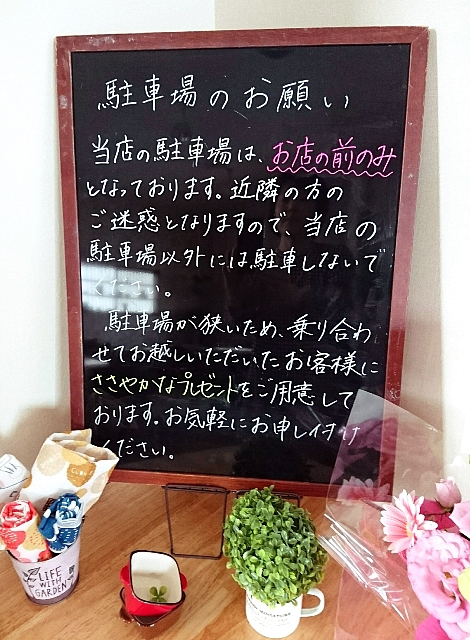 駐車場のお願い
当店の駐車場は、お店の前のみ
となっております。近隣の方の
ご迷惑となりますので、当店の
駐車場以外には駐車しないで
ください。
駐車場が狭いため、乗り合わ
せてお越しいただいたお客様に
ささやかなプレゼントをご用意して
おります。お気軽にお申し付け
ください。
LIFE
WITH
GARDEN